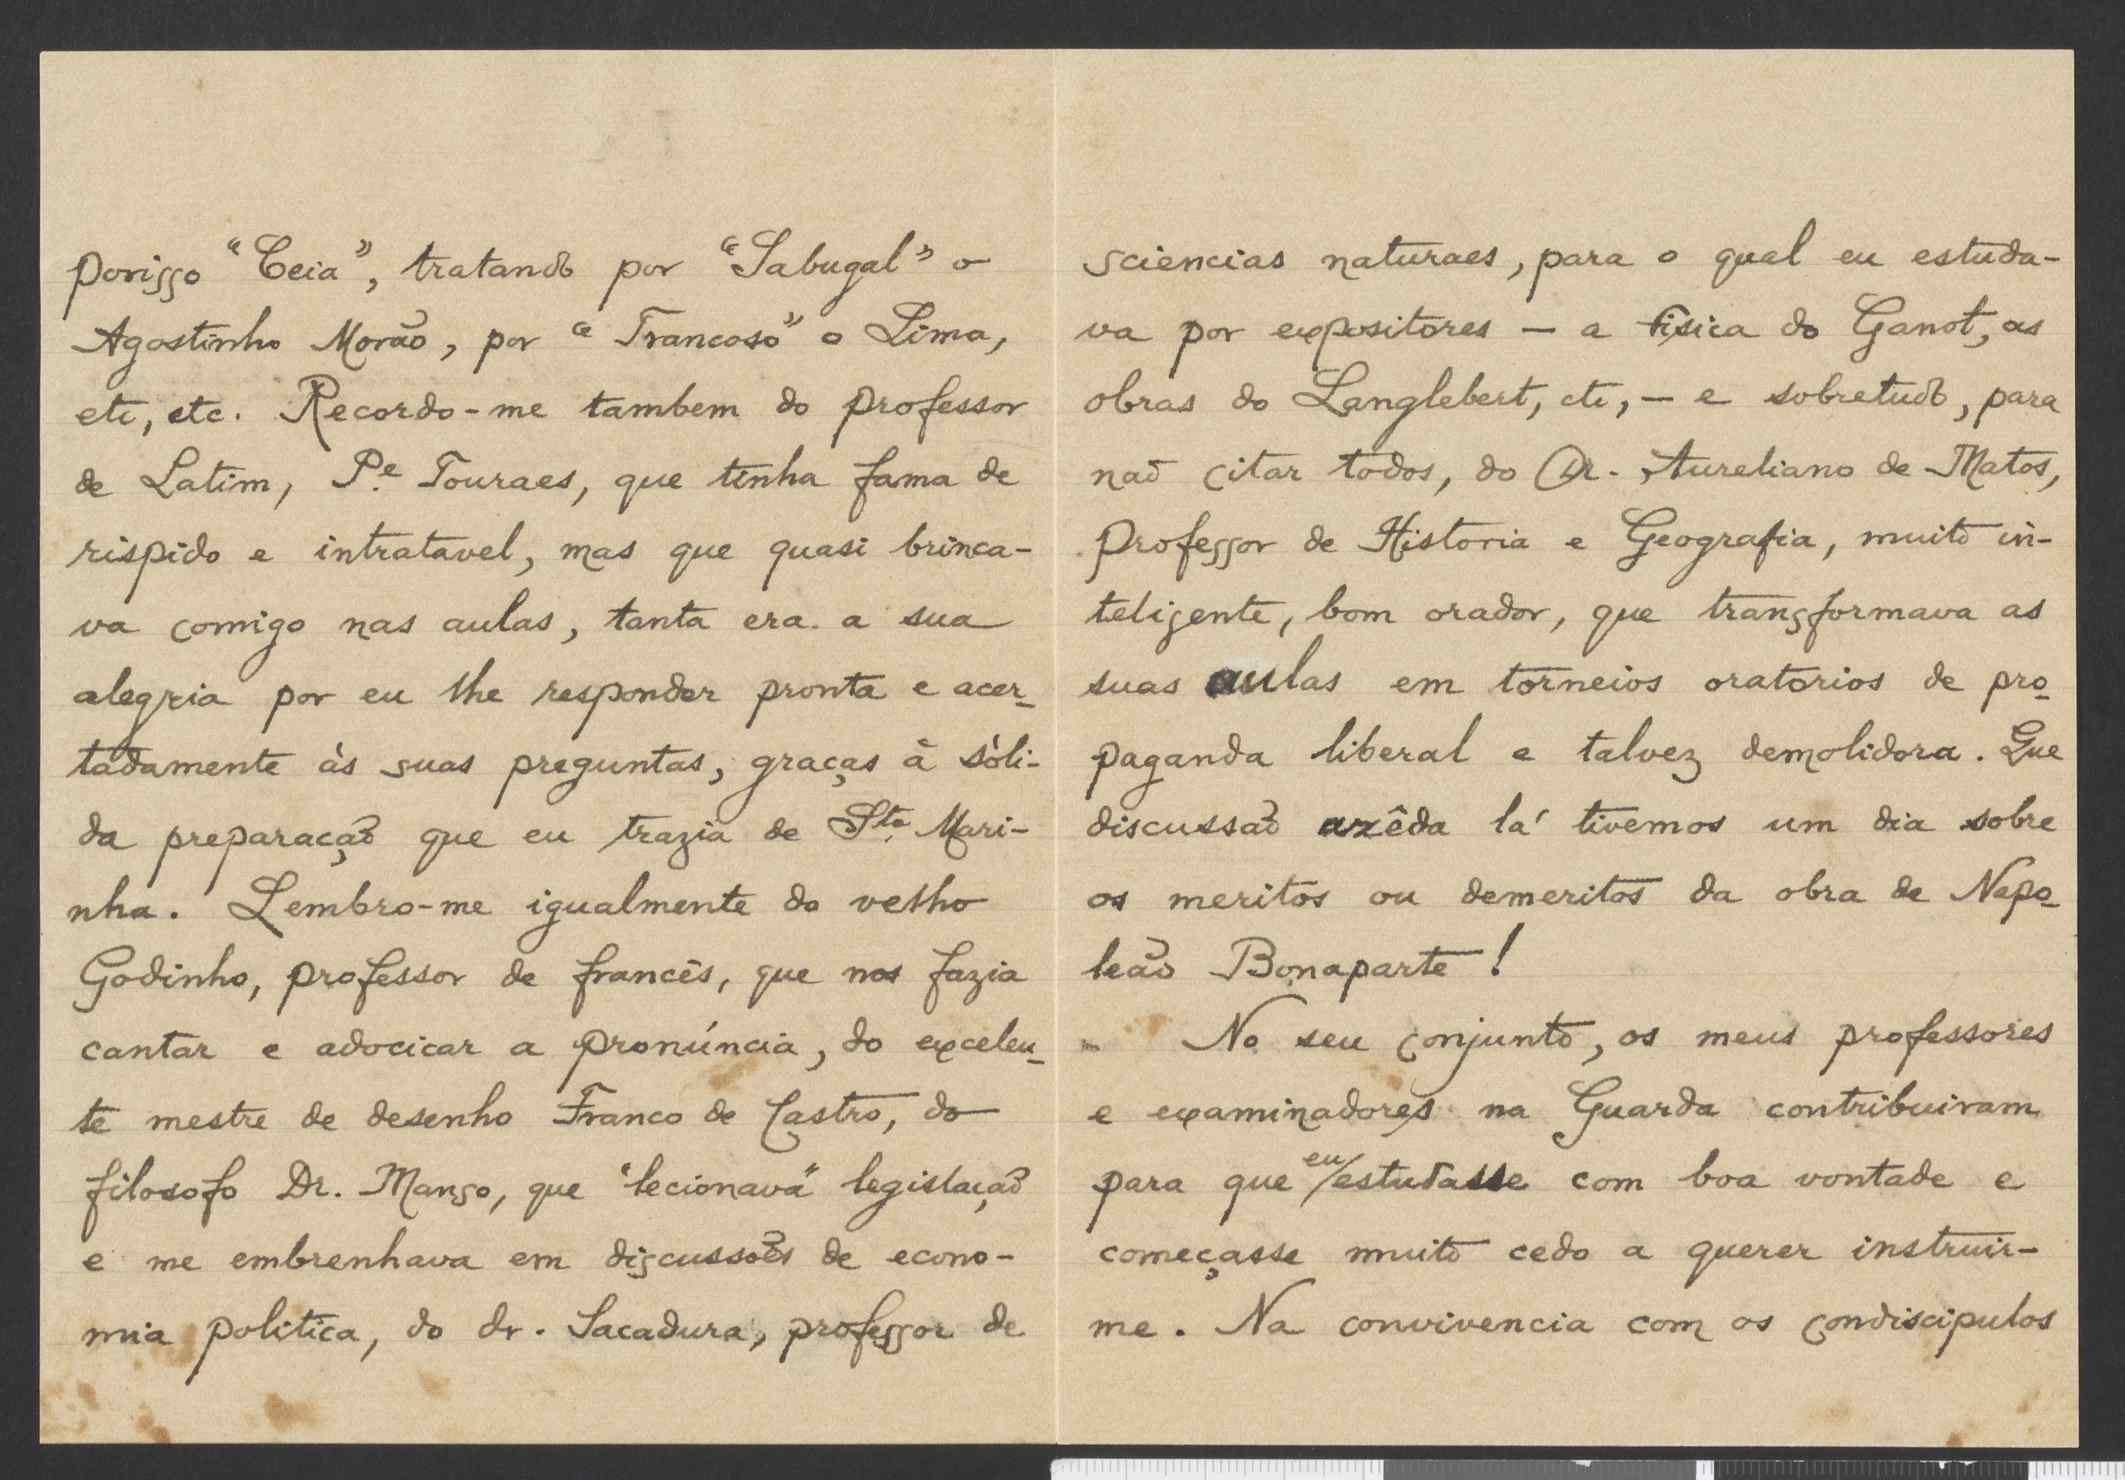 porisso "Ceia", tratando por "Sabugal" o
Agostinho Morão, por "Trancoso" o Lima,
etc, etc. Recordo-me tambem do professor
de Latim, P.e Touraes, que tinha fama de
rispido e intratavel, mas que quasi brinca-
va comigo nas aulas, tanta era a sua
alegria por eu lhe responder pronta e acer-
tadamente às suas preguntas, graças à sòli-
da preparação que eu trazia de Sta. Mari-
nha. Lembro-me igualmente do velho
Godinho, professor de francês, que nos fazia
cantar e adocicar a pronúncia, do excelen-
te mestre de desenho Franco de Castro, do
filosofo Dr. Manso, que "lecionava" legislação
e me embrenhava em discussões de econo-
mia politica, do dr. Sacadura, professor de
sciencias naturaes, para o qual eu estuda-
va por expositores — a fisica do Ganot, as
obras do Langlebert, etc, — e sobretudo, para
não citar todos, do Dr. Aureliano de Matos,
professor de Historia e Geografia, muito in-
teligente, bom orador, que transformava as
suas aulas em torneios oratorios de pro-
paganda liberal e talvez demolidora. Que
discussão azêda lá tivemos um dia sobre
os meritos ou demeritos da obra de Napo-
leão Bonaparte!
No seu conjunto, os meus professores
e examinadores na Guarda contribuiram
para que eu estudasse com boa vontade e
começasse muito cedo a querer instruir-
me. Na convivencia com os condiscipulos